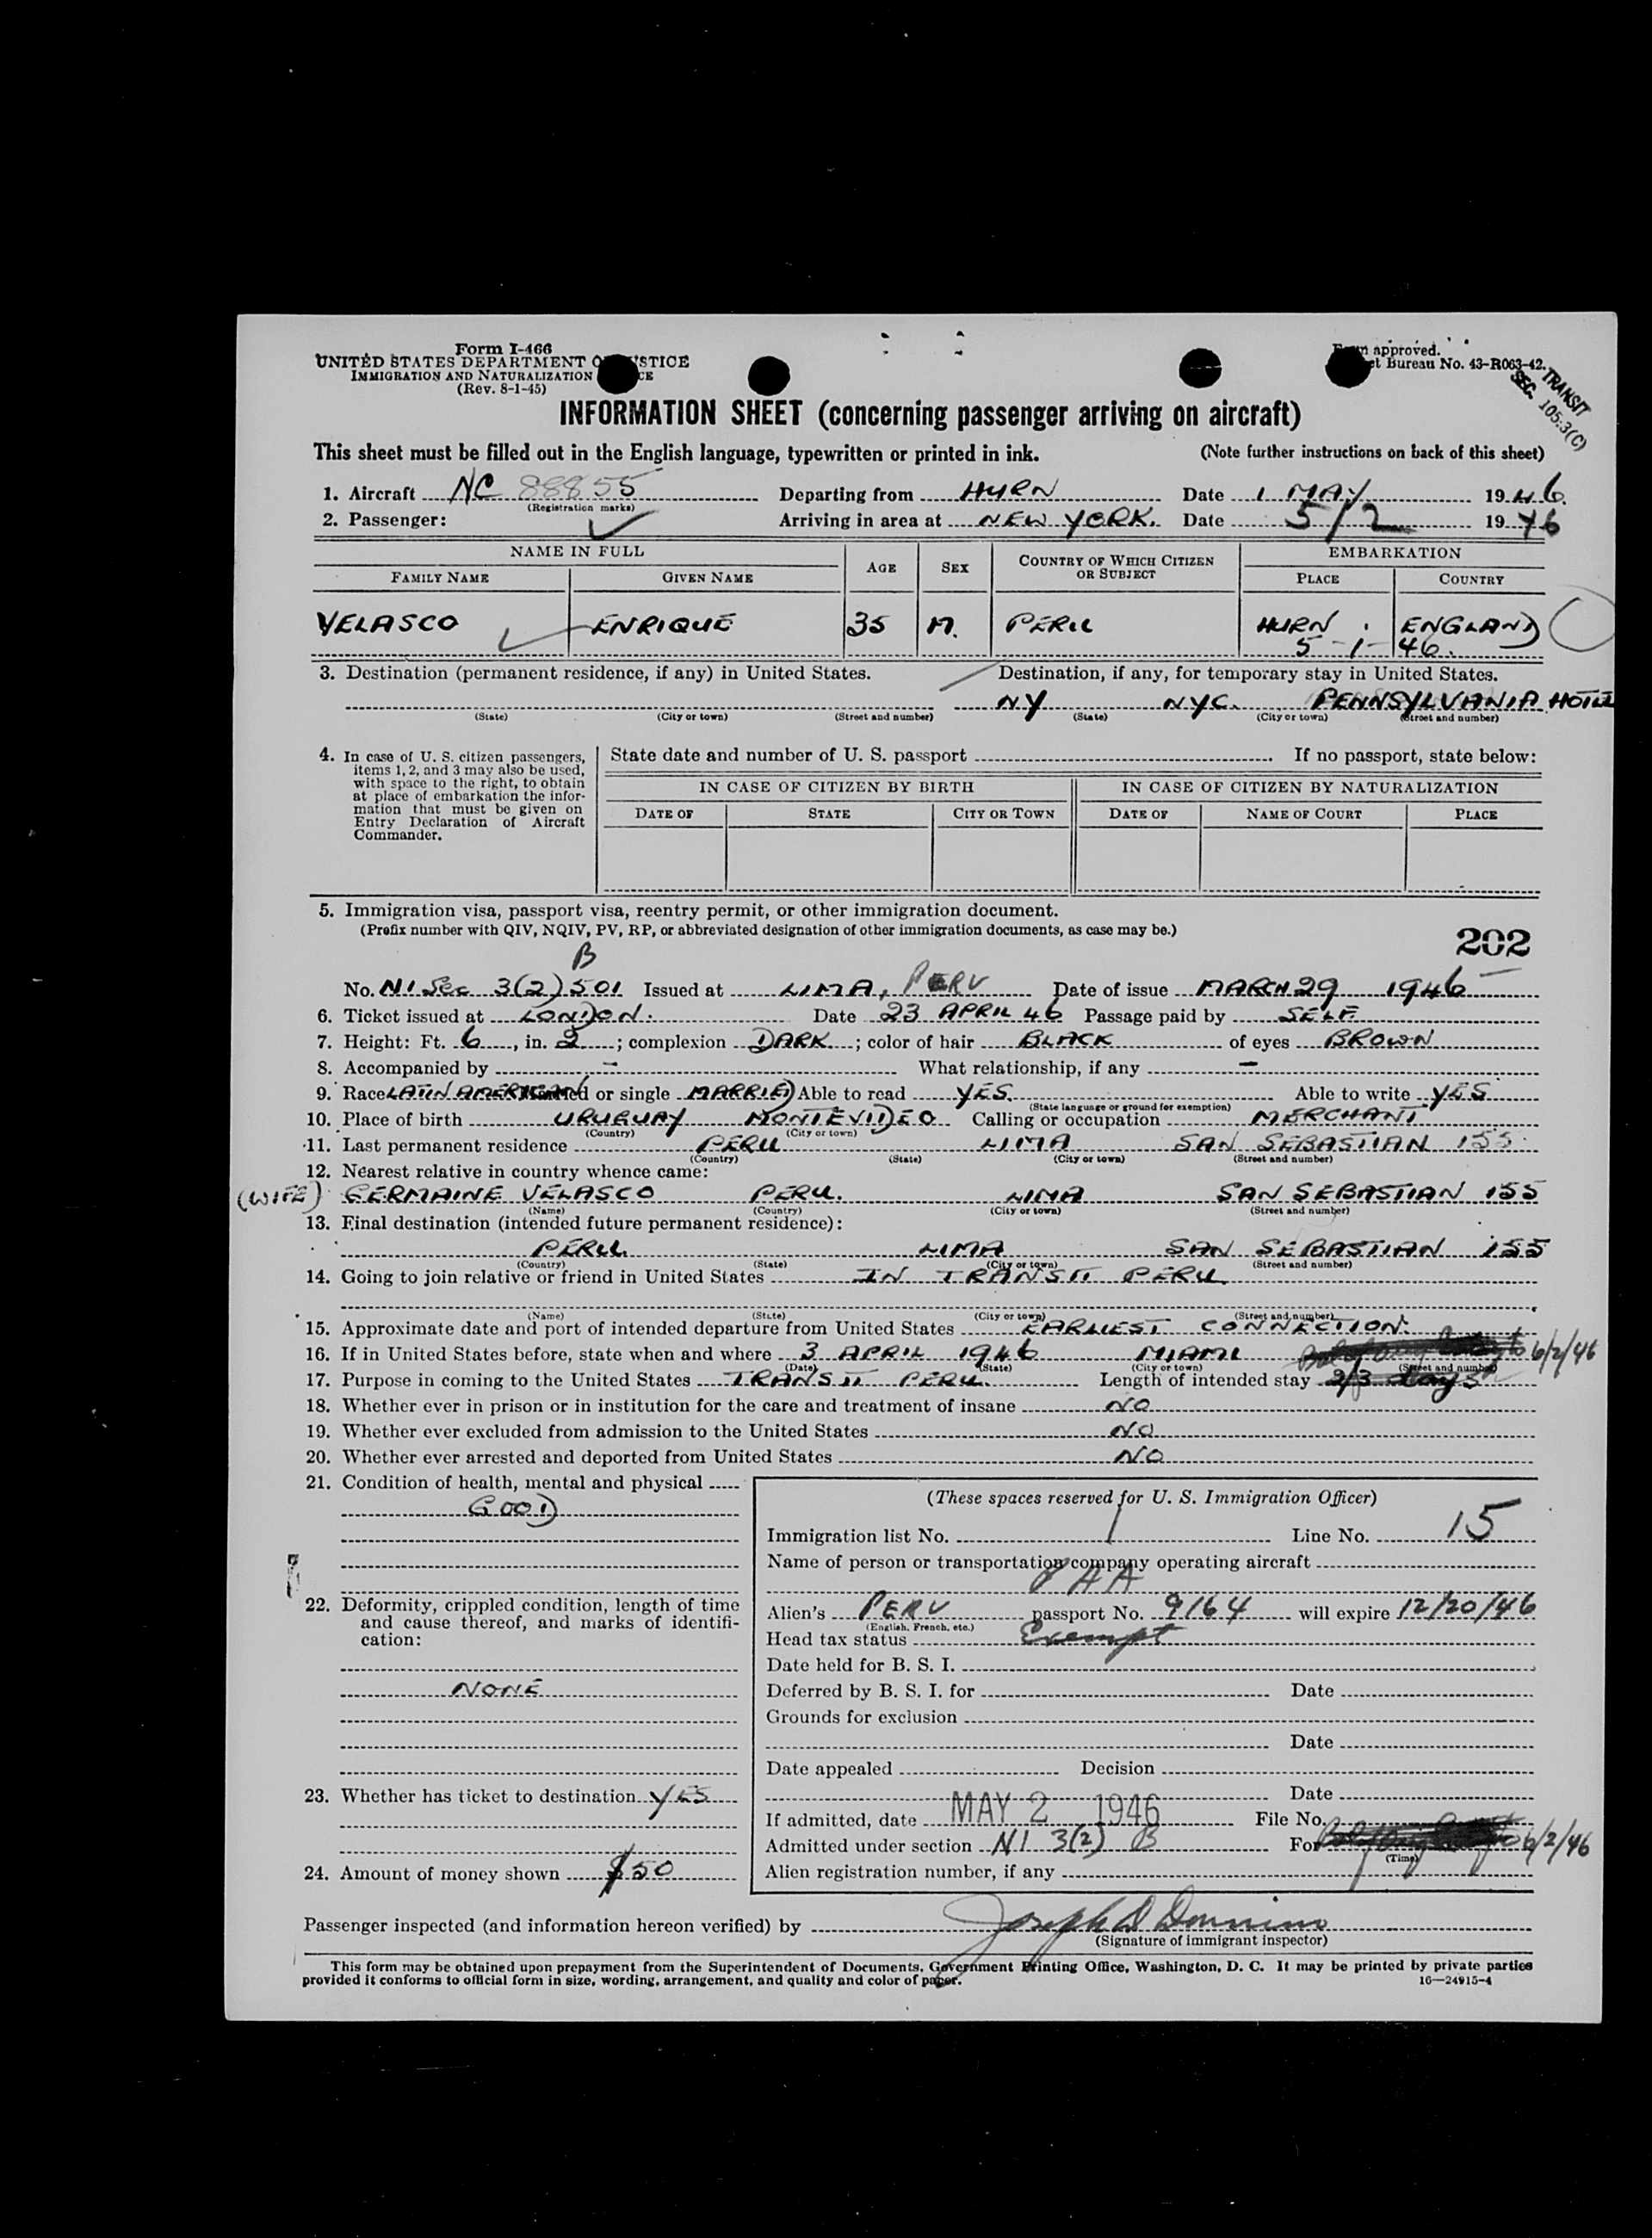 Form I-466
UNITED STATES DEPARTMENT OF JUSTICE
IMMIGRATION AND NATURALIZATION
(Rev. 8-1-45)
approved.
Bureau No. 43-R063-42.
TRANSIT
SEC. 105.3(C)
INFORMATION SHEET (concerning passenger arriving on aircraft)
This sheet must be filled out in the English language, typewritten or printed in ink. (Note further instructions on back of this sheet)
1. Aircraft NC 88855 Departing from HURN Date 1 MAY 1946.
(Registration marks)
2. Passenger: Arriving in area at NEW YORK. Date 5/2 1946
NAME IN FULL AGE SEX COUNTRY OF WHICH CITIZEN OR SUBJECT EMBARKATION
FAMILY NAME GIVEN NAME PLACE COUNTRY
VELASCO ENRIQUE 35 M. PERU HURN ENGLAND
5-1-46.
3. Destination (permanent residence, if any) in United States. Destination, if any, for temporary stay in United States.
NY NYC. PENNSYLVANIA HOTEL
(State) (City or town) (Street and number) (State) (City or town) (Street and number)
4. In case of U. S. citizen passengers, items 1, 2, and 3 may also be used, with space to the right, to obtain at place of embarkation the information that must be given on Entry Declaration of Aircraft Commander.
State date and number of U. S. passport If no passport, state below:
IN CASE OF CITIZEN BY BIRTH IN CASE OF CITIZEN BY NATURALIZATION
DATE OF STATE CITY OR TOWN DATE OF NAME OF COURT PLACE
5. Immigration visa, passport visa, reentry permit, or other immigration document.
(Prefix number with QIV, NQIV, PV, RP, or abbreviated designation of other immigration documents, as case may be.)
202
B
No. NI Sec 3(2) 501 Issued at LIMA, PERU Date of issue MARCH 29 1946
6. Ticket issued at LONDON. Date 23 APRIL 46 Passage paid by SELF
7. Height: Ft. 6, in. 2; complexion DARK; color of hair BLACK of eyes BROWN
8. Accompanied by – What relationship, if any –
9. Race LATIN AMERICAN Married or single MARRIED Able to read YES. Able to write YES
(State language or ground for exemption)
10. Place of birth URUGUAY MONTEVIDEO Calling or occupation MERCHANT
(Country) (City or town)
11. Last permanent residence PERU LIMA SAN SEBASTIAN 155
(Country) (State) (City or town) (Street and number)
12. Nearest relative in country whence came:
(WIFE) GERMAINE VELASCO PERU. LIMA SAN SEBASTIAN 155
(Name) (Country) (City or town) (Street and number)
13. Final destination (intended future permanent residence):
PERU LIMA SAN SEBASTIAN 155
(Country) (State) (City or town) (Street and number)
14. Going to join relative or friend in United States IN TRANSIT PERU
(Name) (State) (City or town) (Street and number)
15. Approximate date and port of intended departure from United States EARLIEST CONNECTION.
16. If in United States before, state when and where 3 APRIL 1946 MIAMI 6/2/46
(Date) (State) (City or town) (Street and number)
17. Purpose in coming to the United States TRANSIT PERU. Length of intended stay 2/3 days
18. Whether ever in prison or in institution for the care and treatment of insane NO
19. Whether ever excluded from admission to the United States NO
20. Whether ever arrested and deported from United States NO
21. Condition of health, mental and physical
GOOD
22. Deformity, crippled condition, length of time and cause thereof, and marks of identification:
NONE
23. Whether has ticket to destination YES
24. Amount of money shown $50
(These spaces reserved for U. S. Immigration Officer)
Immigration list No. 1 Line No. 15
Name of person or transportation company operating aircraft
PAA
Alien's PERU passport No. 9164 will expire 12/20/46
(English, French, etc.)
Head tax status Exempt
Date held for B. S. I.
Deferred by B. S. I. for Date
Grounds for exclusion
Date
Date appealed Decision
Date
If admitted, date MAY 2 1946 File No.
Admitted under section NI 3(2) B For 6/2/46
(Time)
Alien registration number, if any
Passenger inspected (and information hereon verified) by Joseph D Donnino
(Signature of immigrant inspector)
This form may be obtained upon prepayment from the Superintendent of Documents, Government Printing Office, Washington, D. C. It may be printed by private parties
provided it conforms to official form in size, wording, arrangement, and quality and color of paper. 16—24915-4